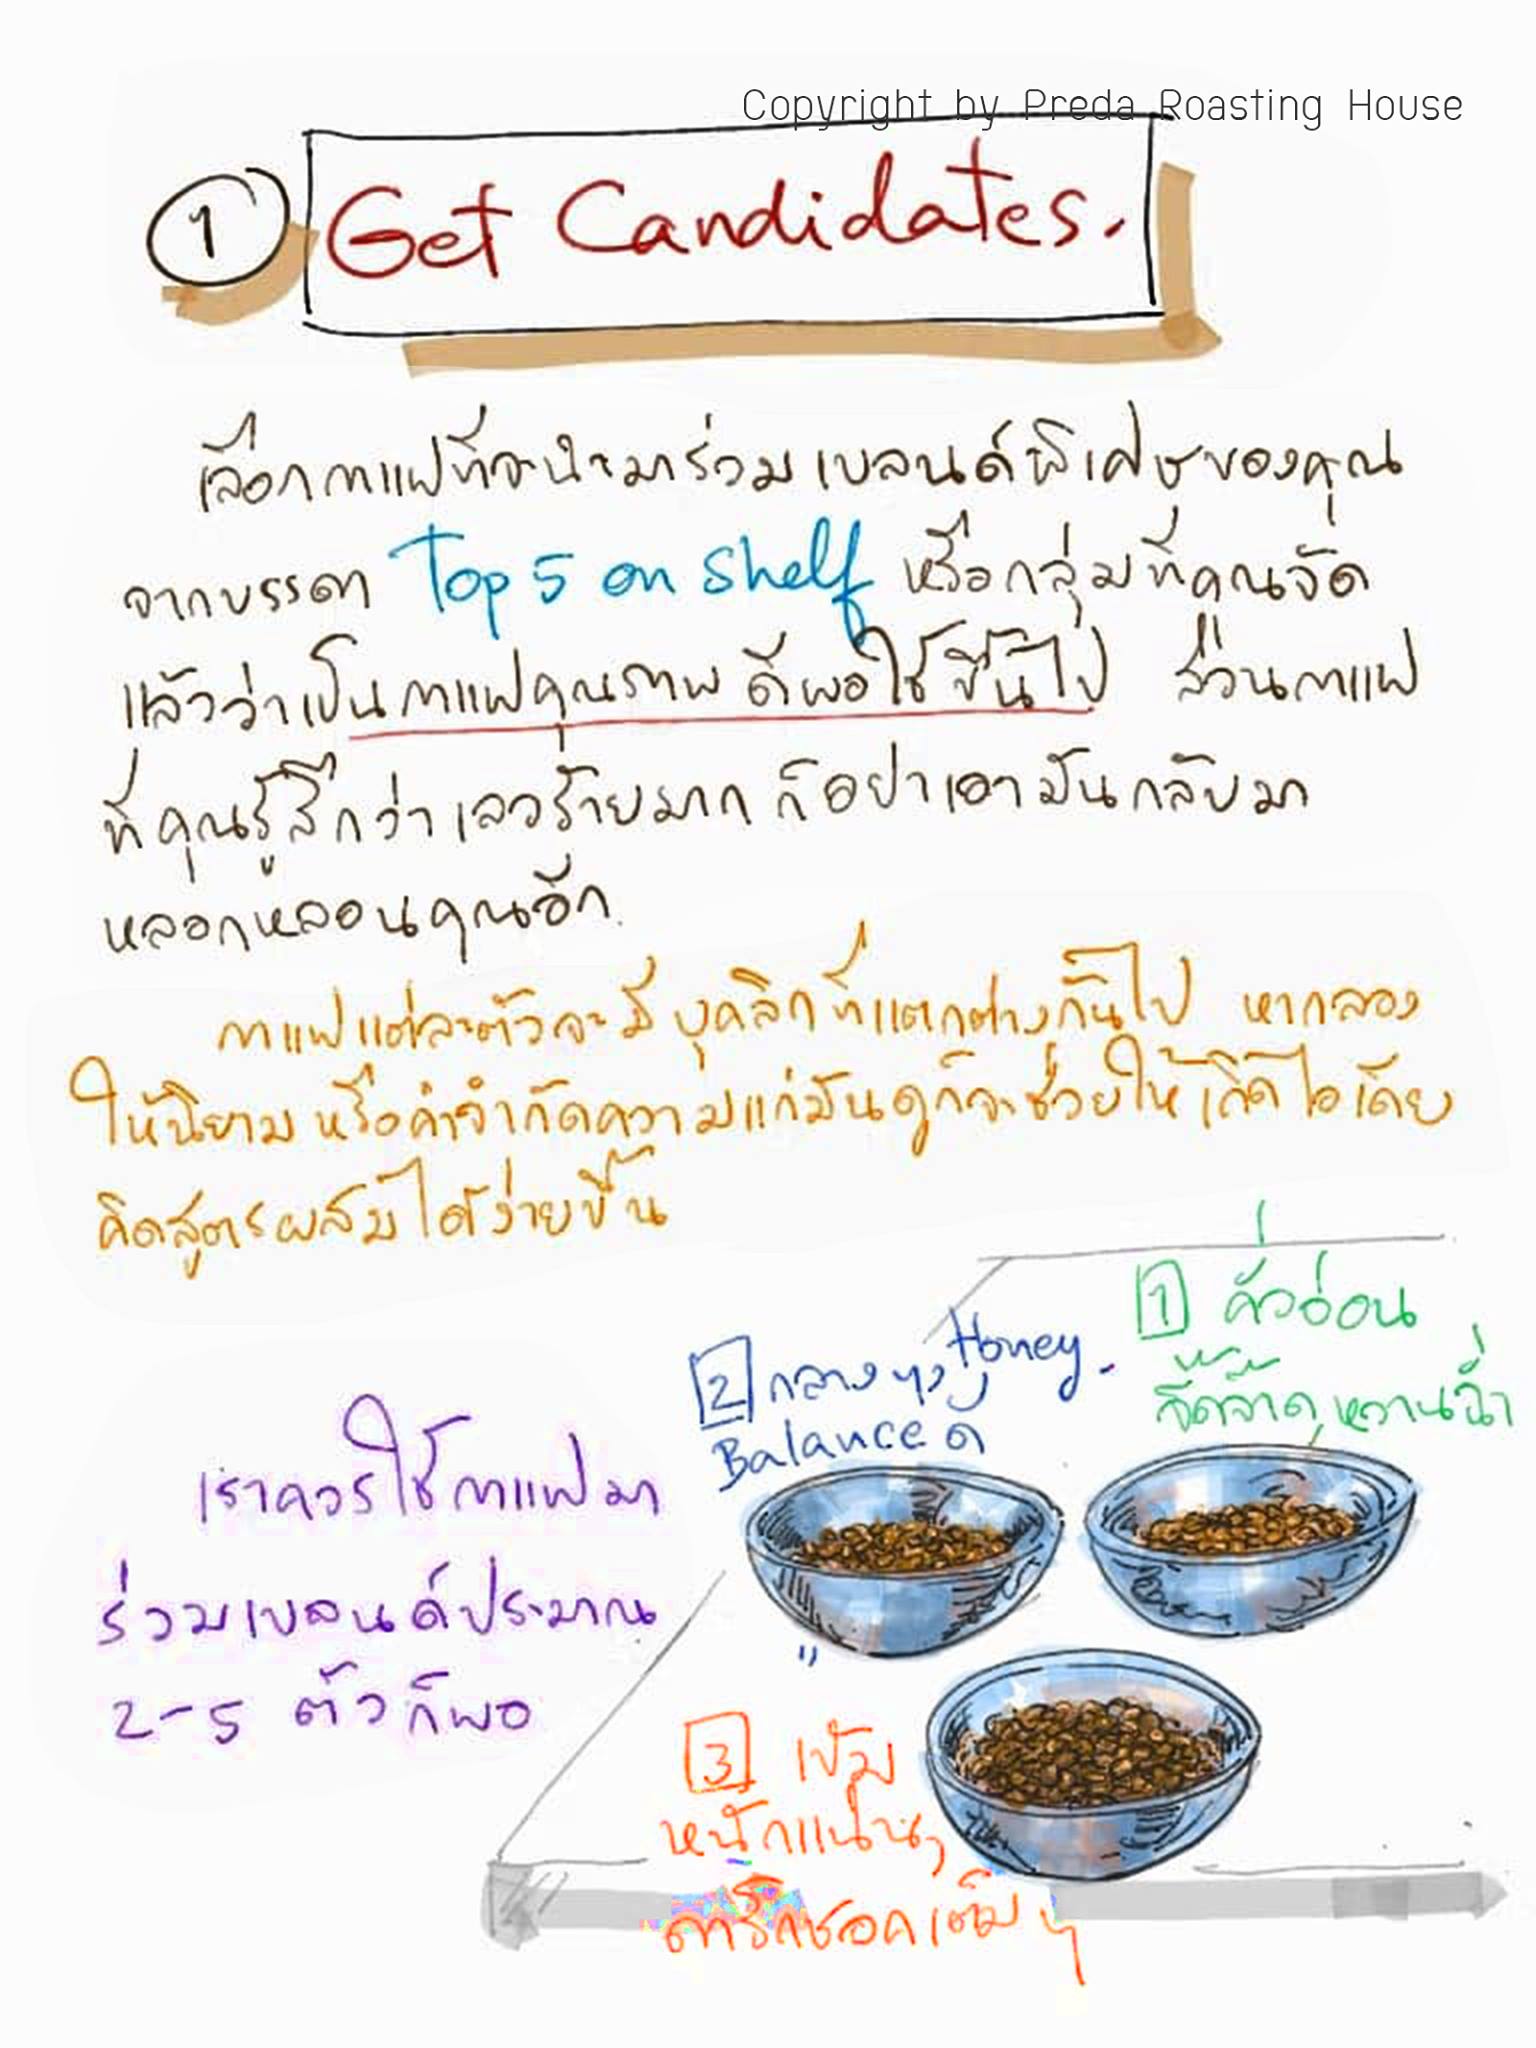 Copyright by Preda Roasting House
1 Get Candidates.
เลือกกาแฟที่จะนำมาร่วมเบลนด์พิเศษของคุณ
จากบรรดา Top 5 on shelf หรือกลุ่มที่คุณจัด
แล้วว่าเป็นกาแฟคุณภาพ ดีพอใช้ขึ้นไป ส่วนกาแฟ
ที่คุณรู้สึกว่าเลวร้ายมาก ก็อย่าเอามันกลับมา
หลอกหลอนคุณอีก.
กาแฟแต่ละตัวจะมีบุคลิกที่แตกต่างกันไป หากลอง
ให้นิยาม หรือคำจำกัดความแก่มันดูก็จะช่วยให้เกิดไอเดีย
คิดสูตรผสมได้ง่ายขึ้น
1 คั่วอ่อน
จี๊ดจ๊าด, หวานฉ่ำ
2 กลางๆ Honey.
Balance ดี
เราควรใช้กาแฟมา
ร่วมเบลนด์ประมาณ
2-5 ตัวก็พอ
3 เข้ม
หนักแน่น,
ดาร์กชอคเต็มๆ